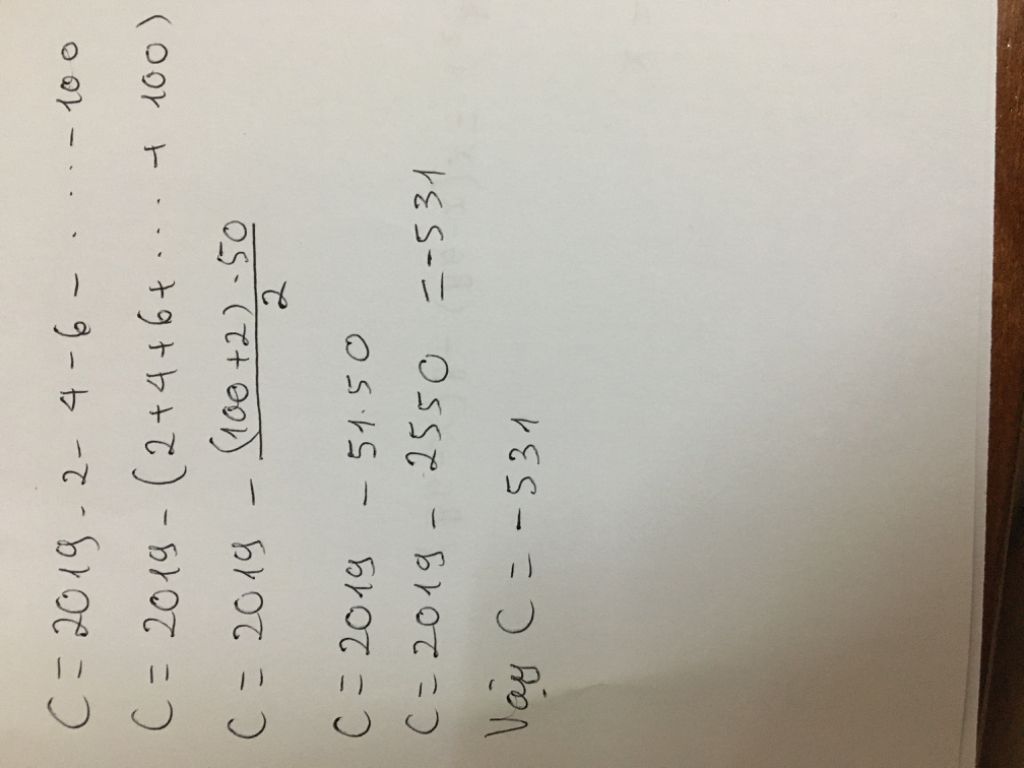 C = 2019 - 2 - 4 - 6 - .... - 100
C = 2019 - (2 + 4 + 6 + .... + 100)
C = 2019 - (100 + 2) . 50 / 2
C = 2019 - 51.50
C = 2019 - 2550 = -531
Vậy C = -531